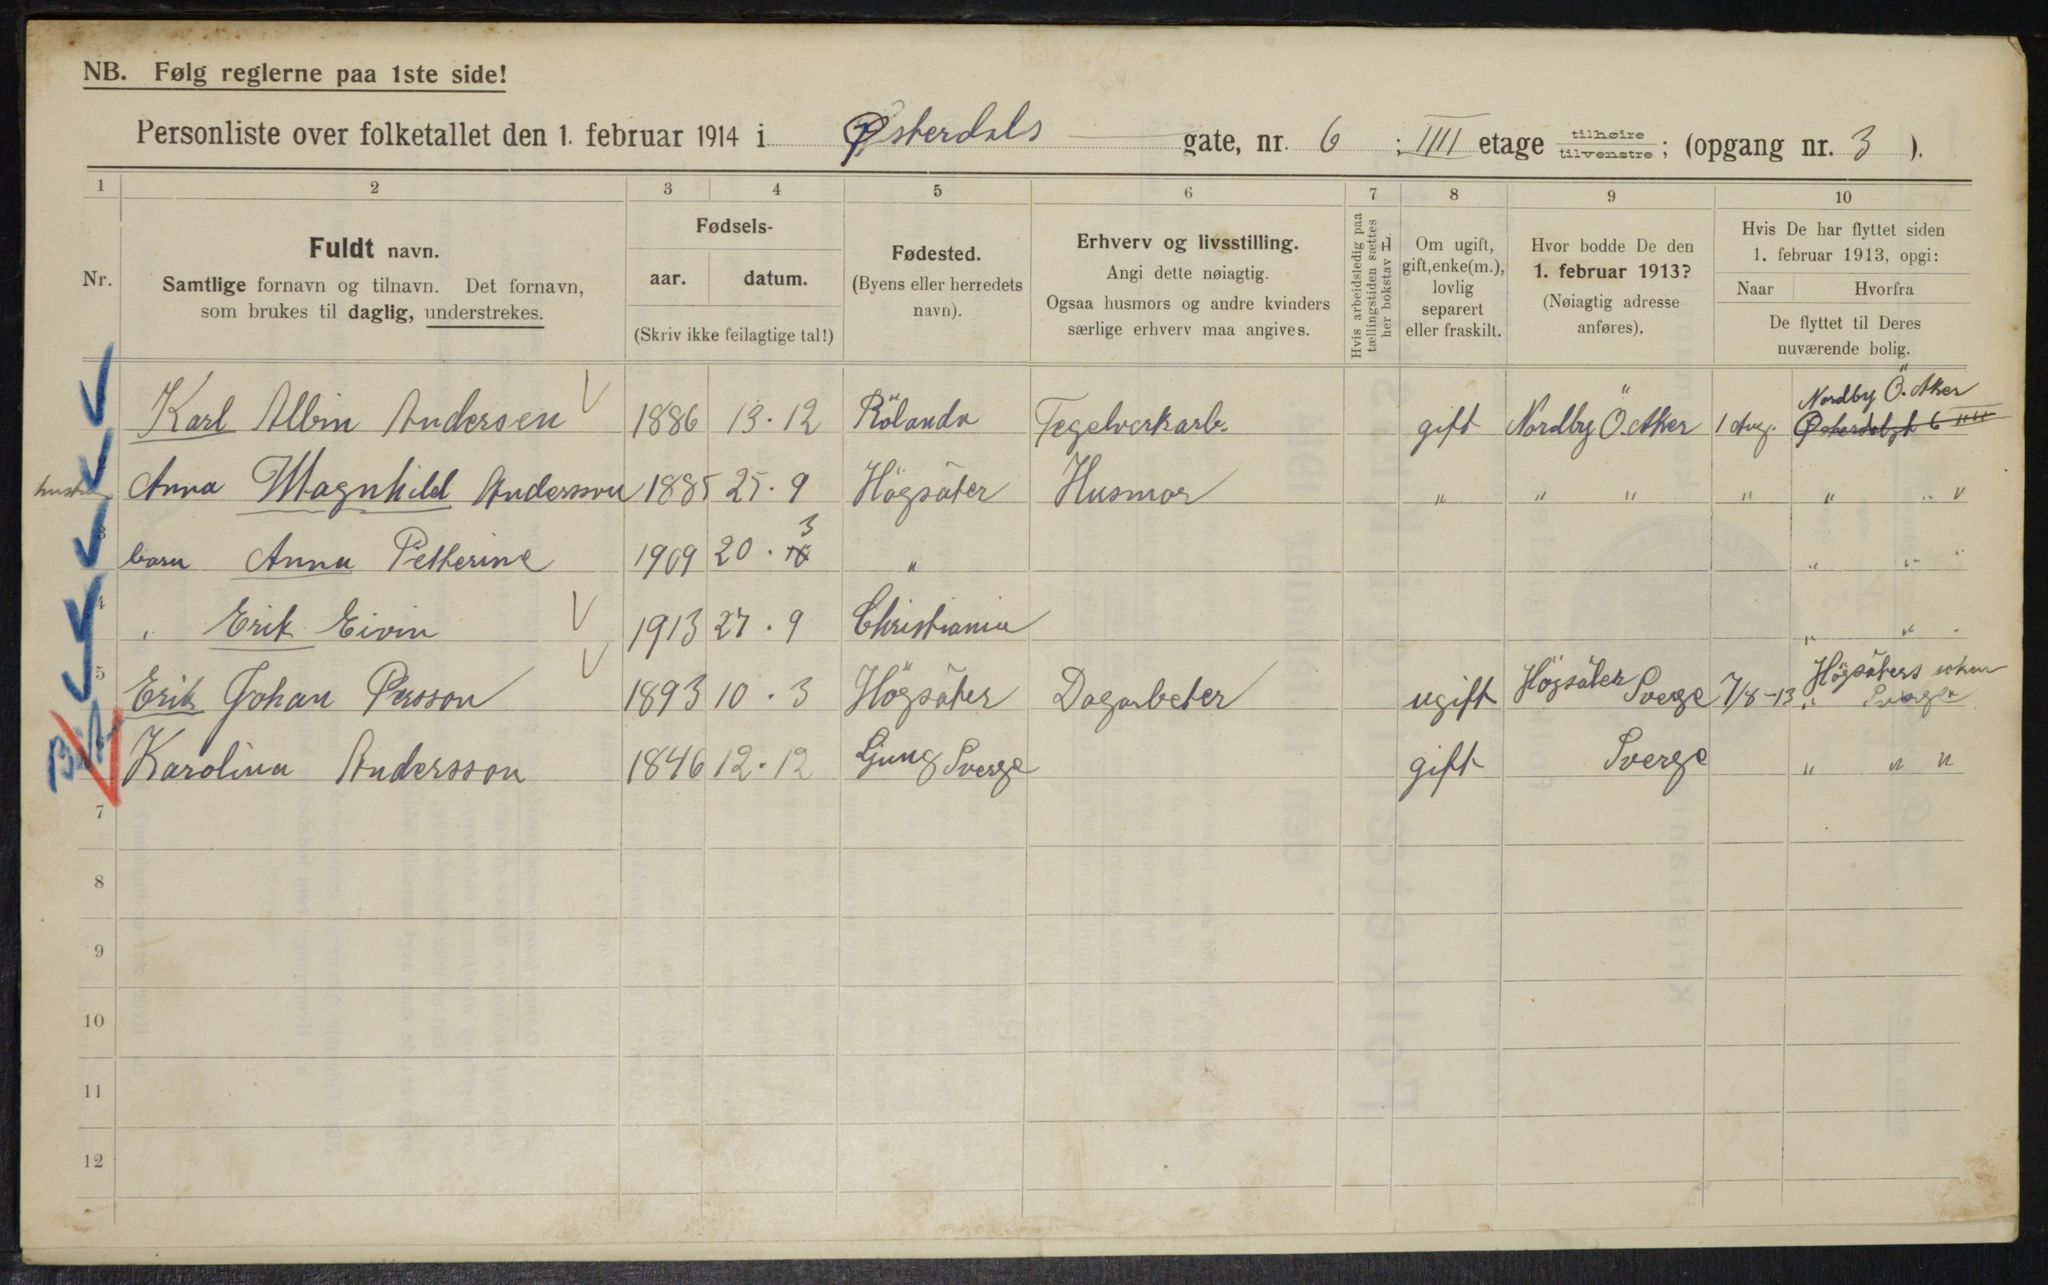 NB. Følg reglerne paa 1ste side!
Personliste over folketallet den 1. februar 1914 i Østerdals gate, nr. 6 ; IIII etage tilhøire tilvenstre; (opgang nr. 3 ).
1 2 3 4 5 6 7 8 9 10
Nr.
Fuldt navn.
Samtlige fornavn og tilnavn. Det fornavn,
som brukes til daglig, understrekes.
Fødsels-
aar. datum.
(Skriv ikke feilagtige tal!)
Fødested.
(Byens eller herredets
navn).
Erhverv og livsstilling.
Angi dette nøiagtig.
Ogsaa husmors og andre kvinders
særlige erhverv maa angives.
Hvis arbeidsledig paa
tællingstiden sættes
her bokstav L.
Om ugift,
gift, enke(m.),
lovlig
separert
eller fraskilt.
Hvor bodde De den
1. februar 1913?
(Nøiagtig adresse
anføres).
Hvis De har flyttet siden
1. februar 1913, opgi:
Naar Hvorfra
De flyttet til Deres
nuværende bolig.
Nordby Ö. Aker
Karl Albin Andersen 1886 13 . 12 Rölanda Tegelverkarb. gift Nordby Ö. Aker 1 Aug. Østerdalsgt 6 IIII
Anna Magnhild Andersson 1885 25 . 9 Högsäter Husmor " " " " " " "
barn Anna Petherine 1909 20 . 3 " " " "
4 " Erik Eivin 1913 27 . 9 Christiania " " "
5 Erik Johan Persson 1893 10 . 3 Högsäter Dagarbeter ugift Högsäter Sverge 7/8-13 Högsäters
" Sverge
Karolina Andersson 1846 12 . 12 Ljung Sverge gift Sverge " " "
7
8
9
10
11
12